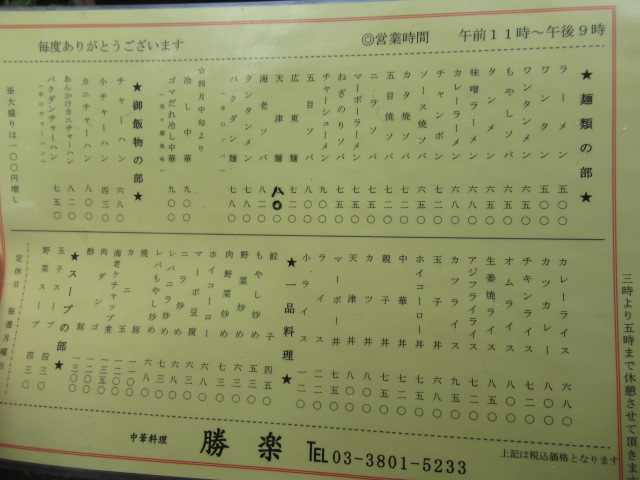 毎度ありがとうございます
◎営業時間　午前11時～午後9時
★麺類の部★
ラーメン 五〇〇
ワンタン 五〇〇
ワンタンメン 六五〇
もやしソバ 六五〇
タンメン 六五〇
味噌ラーメン 六八〇
カレーラーメン 六八〇
チャンポン 七二〇
ソース焼ソバ 六五〇
カタ焼ソバ 七二〇
五目焼ソバ 七二〇
ニラソバ 七五〇
マーボーラーメン 七五〇
ねぎのりソバ 七五〇
チャーシューメン 九〇〇
五目ソバ 八〇〇
広東麺 七二〇
天津麺 八〇〇
海老ソバ 八二〇
タンタンメン 七八〇
バクダン麺 七八〇
☆四月中旬より
冷し中華 九〇〇
ゴマだれ冷し中華 九〇〇
★御飯物の部★
チャーハン 六八〇
小チャーハン 四三〇
カニチャーハン 八〇〇
あんかけカニチャーハン 八二〇
バクダンチャーハン 七五〇
※大盛りは一〇〇円増し
カレーライス 六八〇
カツカレー 八〇〇
チキンライス 七二〇
オムライス 八〇〇
生姜焼ライス
アジフライライス
カツライス 九五〇
玉子丼 六八〇
ホイコーロー丼 七五〇
中華丼 七二〇
親子丼 七五〇
カツ丼 八〇〇
天津丼 七五〇
マーボー丼 七五〇
ライス 二〇〇
小ライス 一二〇
★一品料理★
餃子 四五〇
もやし炒め 五三〇
野菜炒め 六五〇
肉野菜炒め 七五〇
ホイコーロー
マーボ豆腐
ニラ炒め
レバニラ炒め
レバもやし炒め
焼豚
カニ玉
海老ケチャップ煮
肉ダンゴ
酢豚
★スープの部★
玉子スープ 四三〇
野菜スープ 四三〇
定休日　毎週月曜日
三時より五時まで休憩させて頂きます
中華料理　勝楽　TEL 03-3801-5233
上記は税込価格となります